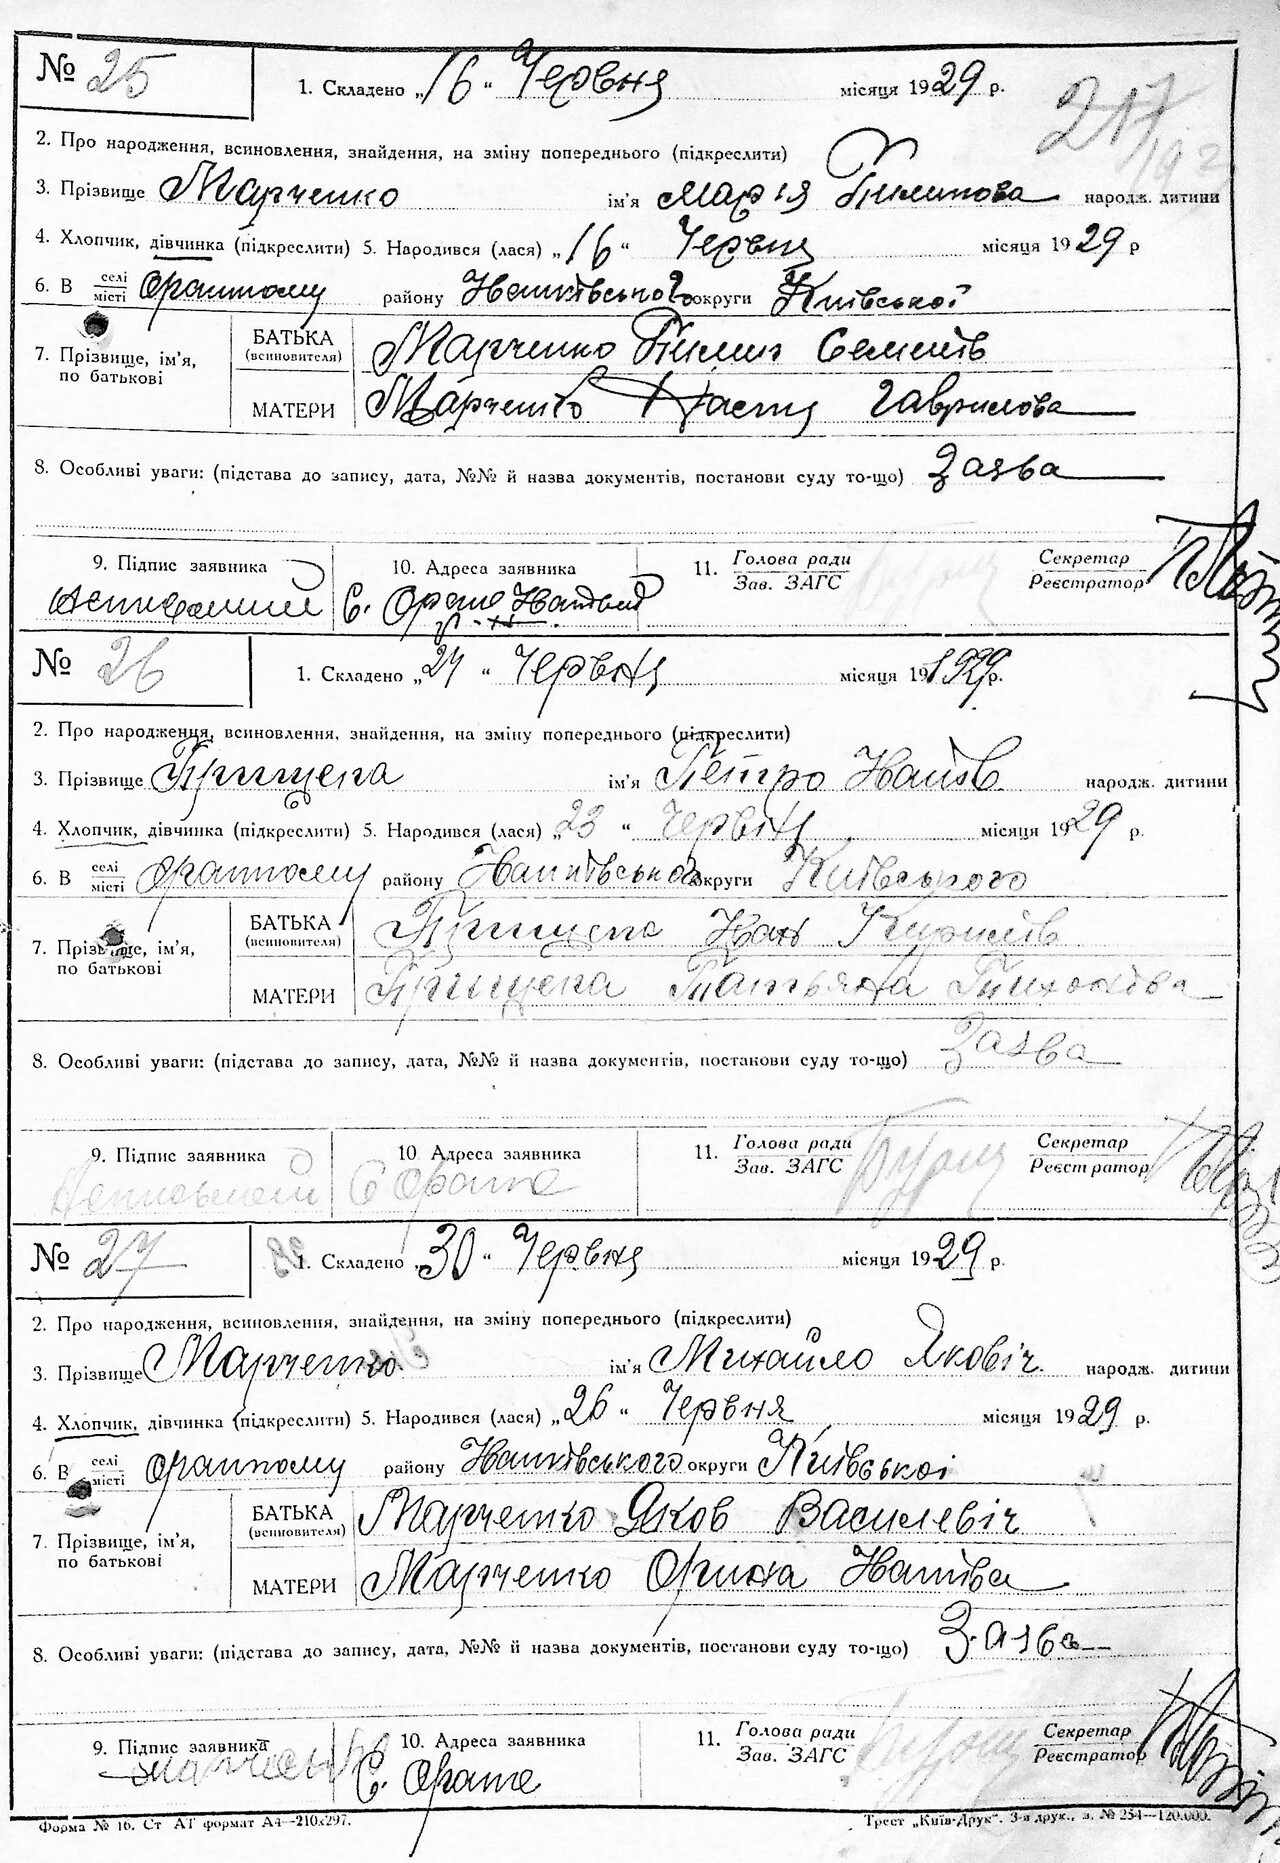 № 25
1. Складено „16“ Червня місяця 1929 р.
217
2. Про народження, всиновлення, знайдення, на зміну попереднього (підкреслити)
3. Прізвище Марченко ім'я Марія Пилипова народж. дитини
4. Хлопчик, дівчинка (підкреслити) 5. Народився (лася) „16“ Червня місяця 1929 р
6. В селі/місті Оранному району Іванківського округи Київської
7. Прізвище, ім'я, по батькові
БАТЬКА (всиновителя) Марченко Пилип Семенів
МАТЕРИ Марченко Настя Гаврилова
8. Особливі уваги: (підстава до запису, дата, №№ й назва документів, постанови суду то-що) Заява
9. Підпис заявника Неписьмений
10. Адреса заявника С. Оране
11. Голова ради / Зав. ЗАГС
Секретар / Реєстратор
№ 26
1. Складено „24“ Червня місяця 1929 р.
2. Про народження, всиновлення, знайдення, на зміну попереднього (підкреслити)
3. Прізвище Прищепа ім'я Петро Іванів народж. дитини
4. Хлопчик, дівчинка (підкреслити) 5. Народився (лася) „23“ Червня місяця 1929 р.
6. В селі/місті Оранному району Іванківського округи Київського
7. Прізвище, ім'я, по батькові
БАТЬКА (всиновителя) Прищепа Іван Кирилів
МАТЕРИ Прищепа Татьяна Тихонова
8. Особливі уваги: (підстава до запису, дата, №№ й назва документів, постанови суду то-що) Заява
9. Підпис заявника Неписьмений
10. Адреса заявника С Оране
11. Голова ради / Зав. ЗАГС
Секретар / Реєстратор
№ 27
1. Складено „30“ Червня місяця 1929 р.
2. Про народження, всиновлення, знайдення, на зміну попереднього (підкреслити)
3. Прізвище Марченко ім'я Михайло Яковіч народж. дитини
4. Хлопчик, дівчинка (підкреслити) 5. Народився (лася) „26“ Червня місяця 1929 р.
6. В селі/місті Оранному району Іванківського округи Київської
7. Прізвище, ім'я, по батькові
БАТЬКА (всиновителя) Марченко Яков Василевіч
МАТЕРИ Марченко Орина Іванівна
8. Особливі уваги: (підстава до запису, дата, №№ й назва документів, постанови суду то-що) Заява
9. Підпис заявника
10. Адреса заявника С. Оране
11. Голова ради / Зав. ЗАГС
Секретар / Реєстратор
Форма № 16. Ст АТ формат А4—210x297.
Трест „Київ-Друк“. 3-я друк., з. № 254—120.000.